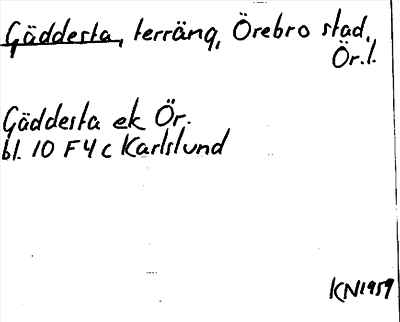 Gäddesta, terräng, Örebro stad,
Ör.l.
Gäddesta ek Ör.
bl. 10 F 4 c Karlslund
KN1959